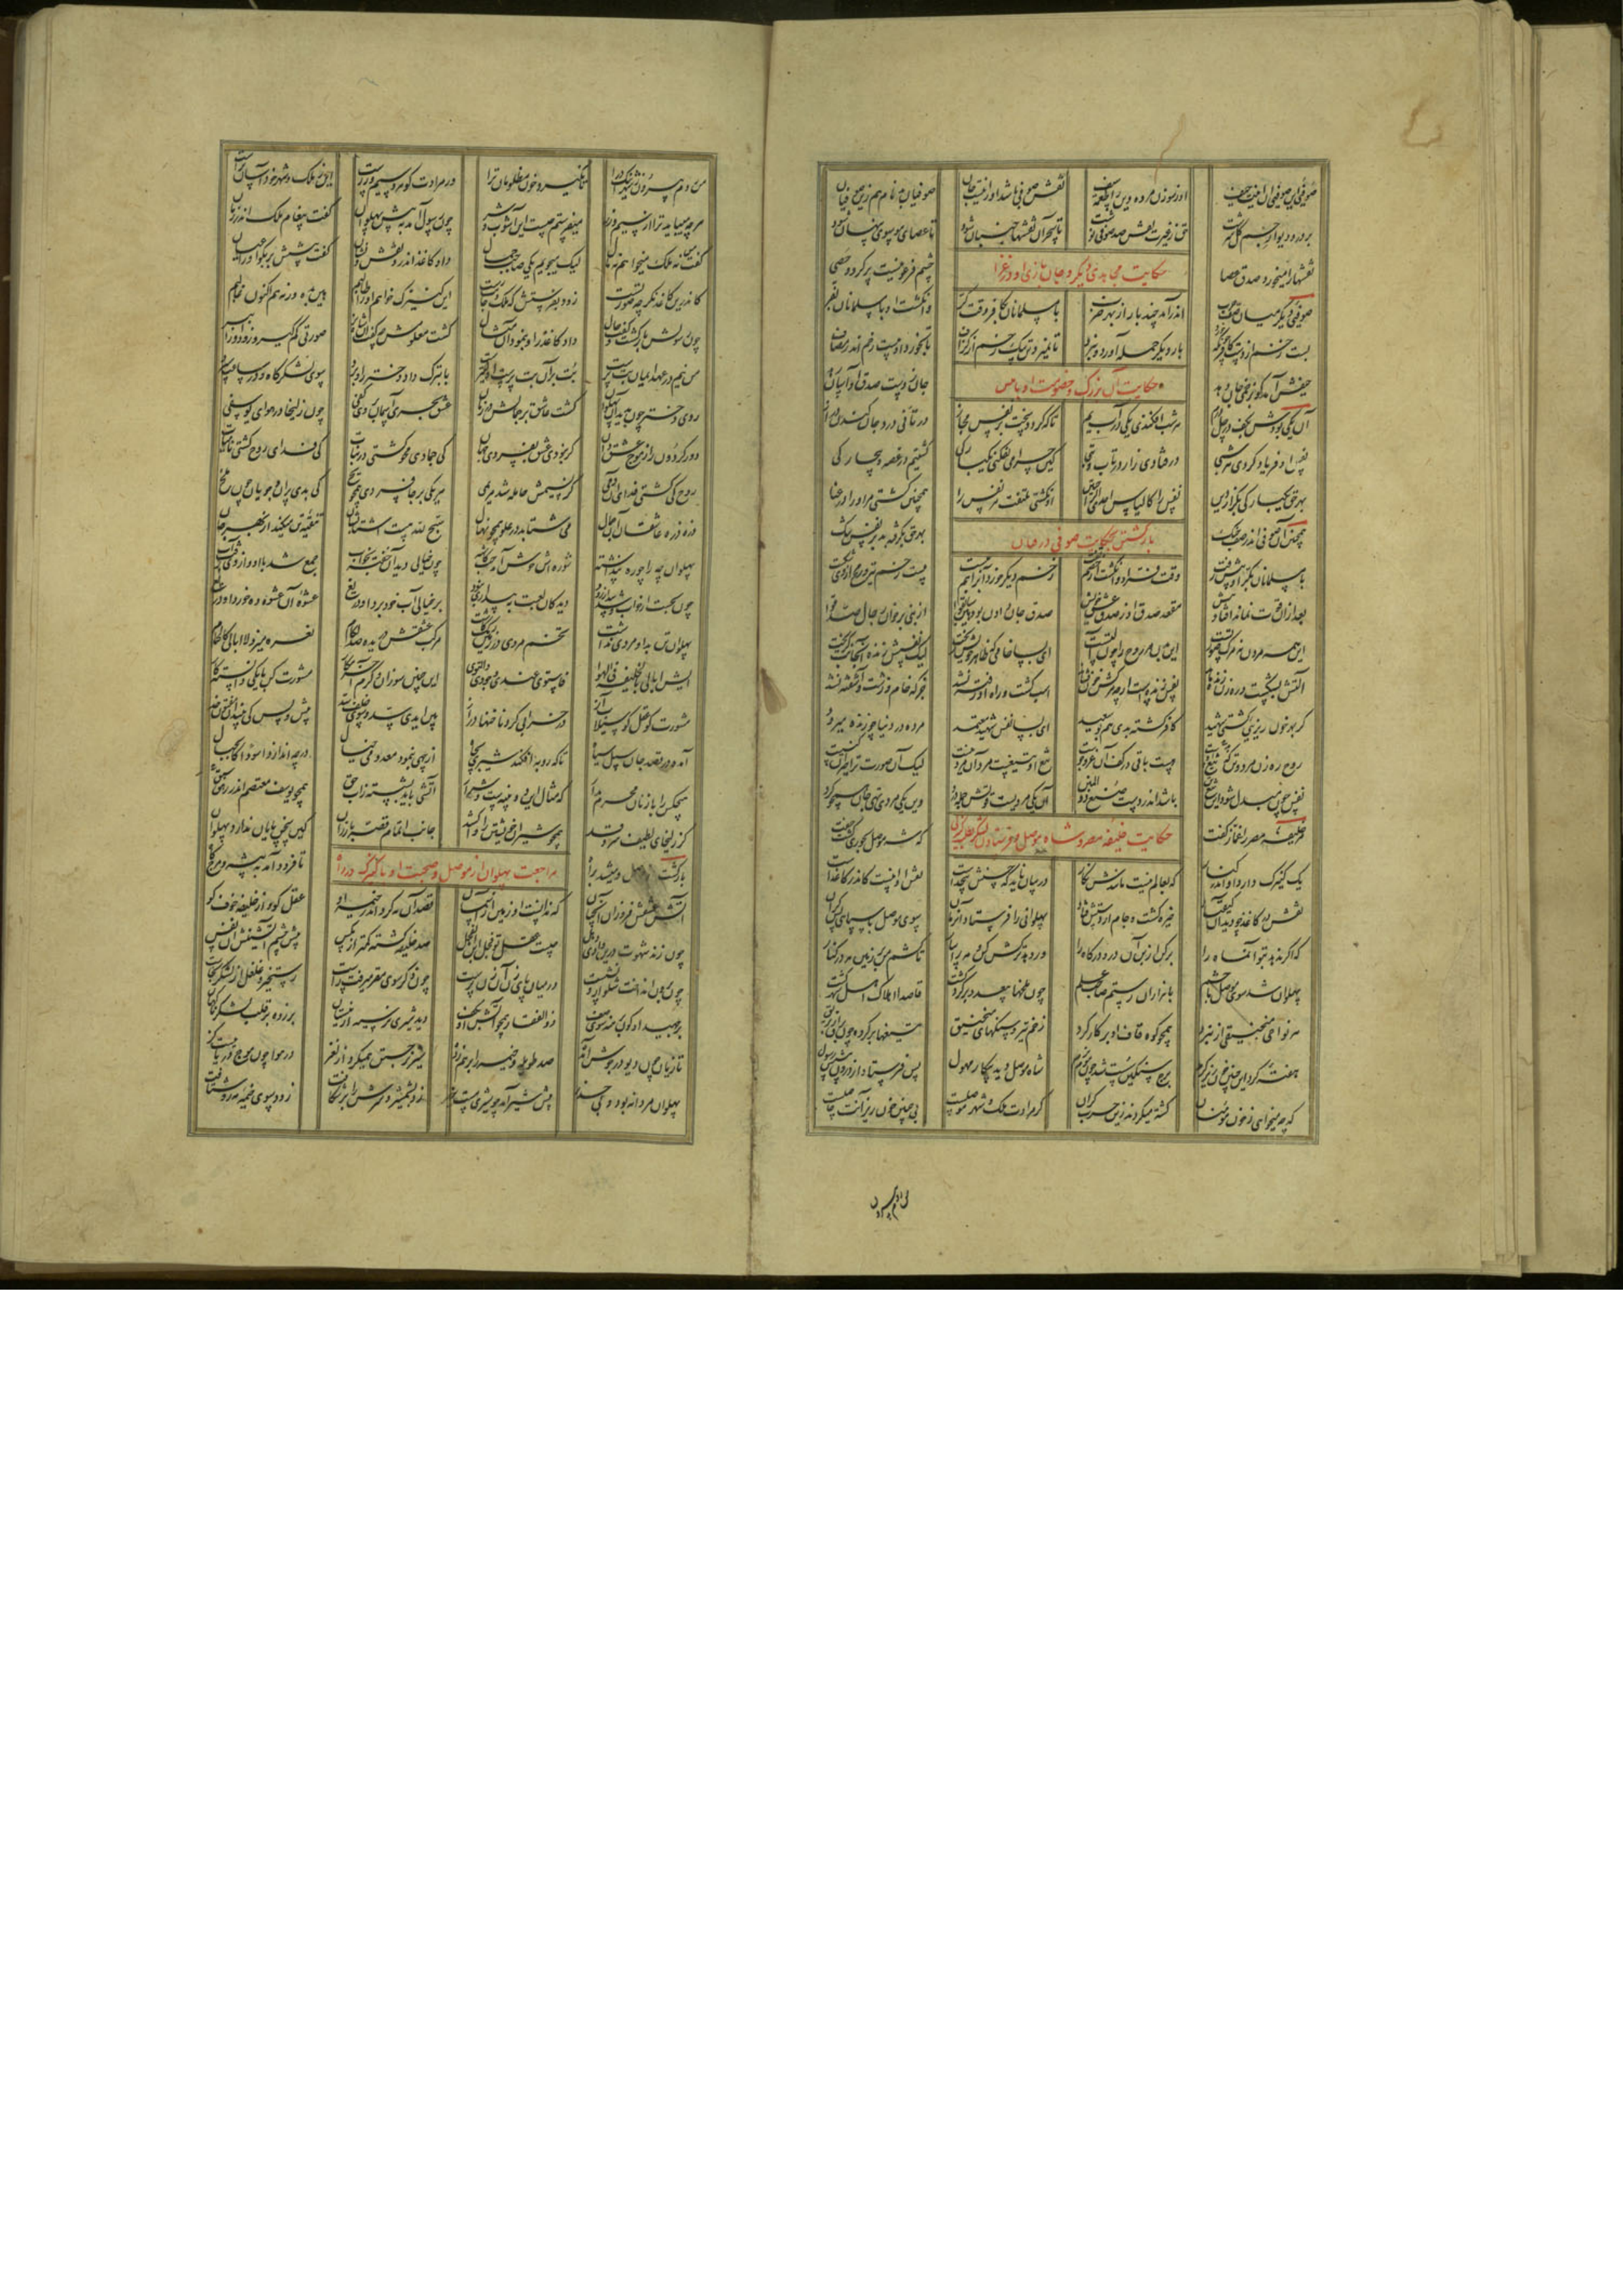 صوفئی این صوفئی آن اینت حیف او ز سوزن مرده وین را طعمه سیف نقش صوفی باشد او را نیست جان صوفیان بدنام هم زین صوفیان
بر در و دیوار جسم گل سرشت حق ز غیرت نقش صد صوفی نوشت تا ز سحر آن نقشها جنبان شود تا عصای موسوی پنهان شود
نقشها را میخورد صدق عصا چشم فرعونیست پر گرد و حصی
حکایت مجاهدی دیگر و جان بازی او در غزا
صوفئی دیگر میان صف حرب اندر آمد چند بار از بهر ضرب با مسلمانان بکافر وقت کر وانگشت او با مسلمانان بفر
بار دیگر حمله آورد و نبرد تا نمیرد تن بیک زخم از گزاف تا خورد او بیست زخم اندر مصاف
حیفش آمد کو بزخمی جان دهد جان ز دست صدق او آسان رهد
حکایت آن بزرگ و خصومت او با نفس
آن یکی بودش بکف در چل درم هر شب افکندی یکی در آب یم تا که گردد سخت بر نفس مجاز در تانی درد جان کندن دراز
نفس او فریاد کردی هر شبی در فتادی زار در تاب و تبی کین چرا می نفکنی یکبارگی کشتیم در غصه و بیچارگی
بهر حق یکبارگی بگذار این نفس را کالیاس احدی الراحتین او نگشتی ملتفت مر نفس را همچنین کشتی مر او را در عنا
همچنان آن صوفی اندر صف جنگ بهر حق بگرفته بد بر نفس تنگ
بازگشتن بحکایت صوفی در جهاد
با مسلمانان بکر او پیش رفت وقت فر او وانگشت از خصم تفت زخم دیگر خورد آنرا هم ببست بیست زخم تیر و رمح از وی شکست
بعد ازان قوت نماند افتاد پیش مقعد صدق او ز صدق عشق خویش صدق جان دادن بود هین سابقوا از نبی برخوان رجال صدقوا
این همه مردن نه مرگ صورتست این بدن مر روح را چون آلتست ای بسا خامی که ظاهر خونش ریخت لیک نفس زنده آن جانب گریخت
آلتش بشکست و رهزن زنده ماند نفس زنده است ارچه مرکب خون فشاند اسب کشت و راه او رفته نشد جز که خام و زشت و آشفته نشد
گر بهر خون ریزیی گشتی شهید کافر کشته بدی هم بوسعید ای بسا نفس شهید معتمد مرده در دنیا چو زنده میرود
روح رهزن مرد و تن که تیغ اوست هست باقی در کف آن غزوجوست تیغ آن تیغست مرد آن مرد نیست لیک آن صورت ترا حیران کنیست
نفس چون مبدل شود این تیغ تن باشد اندر دست صنع ذوالمنن آن یکی مردیست قوتش جمله درد وین یکی مردی تهی جان سپرکرد
حکایت خلیفه مصر و شاه موصل و فرستادن لشکر
خلیفه مصر را غماز گفت که شه موصل بحوری گشت جفت
یک کنیزک دارد او اندر کنار که بعالم نیست مانندش نگار در بیان ناید که حسنش بیحدست نقش او اینست کاندر کاغذست
نقش در کاغذ چو دید آن کیقباد خیره گشت و جام از دستش فتاد پهلوانی را فرستاد آن زمان سوی موصل با سپاه بس گران
که اگر ندهد بتو آن ماه را برکن از بن آن در و درگاه را ور دهد ترکش کن و مه را بیار تا کشم من بر زمین مه در کنار
پهلوان شد سوی موصل با حشم با هزاران رستم صاحب علم چون ملخها بیعدد بر گرد کشت قاصد اهلاک اهل شهر گشت
هر نواحی منجنیقی از نبرد همچو کوه قاف او بر کار کرد زخم تیر و سنگهای منجنیق تیغها بر گرده چون برق از بریق
هفته کرد این چنین خون ریز گرم برج سنگین سست شد چون موم نرم شاه موصل دید پیکار مهول پس فرستاد از درون پیشش رسول
که چه میخواهی ز خون مؤمنان کشته میگردند زین حرب گران گر مرادت ملک و شهر موصلست بی چنین خون ریز اینت حاصلست
من روم بیرون شهر اینک درا تا نگیرد خون مظلومان ترا ور مرادت گوهر و سیم و زرست این ز ملک و شهر خود آسانترست
هر چه میباید ترا از سیم و زر میفرستم چیست این آشوب و شر چون رسول آمد به پیش پهلوان گفت پیغام ملک اندر زمان
گفت نه ملک میخواهم نه مال لیک میجویم یکی صاحب جمال داد کاغذ اندر و نقش و نشان گفت پیشش بر بگو او را عیان
کاندرین کاغذ نگر چه صورتست زود بفرستش که ملک و جانت رست این کنیزک خواهم او را طالبم هین بده ور نه هم اکنون غالبم
چون رسولش بازگشت و گفت حال داد کاغذ را و بنمود آن مثال گشت معلومش چه گفت آن شاه نر صورتی کم گیر زود او را ببر
من نیم در عهد ایمان بت پرست بت بر آن بت پرست اولیترست با تبرک داد دختر را و برد سوی لشکرگاه و در ساعت سپرد
روی دختر چون بدید آن پهلوان گشت عاشق بر جمالش در زمان عشق بحری آسمان بر وی کفی چون زلیخا در هوای یوسفی
دور گردون را ز موج عشق دان گر نبودی عشق بفسردی جهان کی جمادی محو گشتی در نبات کی فدای روح گشتی نامیات
روح کی گشتی فدای آن دمی کز نسیمش حامله شد مریمی هر یکی بر جا فسردی همچو یخ کی بدی پران و جویان چون ملخ
ذره ذره عاشقان آن جمال می شتابد در علو همچون نهال سبح لله هست اشتابشان تنقیه تن میکنند از بهر جان
پهلوان چه را چو ره پنداشته شوره اش خوش آمده حب کاشته چون خیالی دید آن خفته بخواب جمع شد با او و از وی رفت آب
چون بجست از خواب شد بیدار زود دید کان لعبت به بیداری نبود بر خیالی آب خود برد او دریغ عشوه آن عشوه ده خورد او دریغ
پهلوان تن بد او مردی نداشت تخم مردی در زمین ریگ کاشت مرکب عشقش دریده صد لگام نعره میزد لا ابالی بالحمام
ایش ابالی بالخلیفه فی الهوا فاستوی عندی وجودی والتوی این چنین سوزان و گرم آخر مکار مشورت کن با یکی دانسته کار
مشورت کو عقل کو سیلاب آز در خرابی کرد ناخنها دراز بین ایدی سد و سوی خلف سد پیش و پس کی بیند آن مفتون خد
آمده در قصد جان سیل سیاه تا که روبه افکند شیری بچاه از چهی بنمود معدومی خیال در چه اندازد اسودا کالجبال
هیچکس را با زنان محرم مدار که مثال این دو پنبه ست و شرار آتشی باید بشسته ز آب حق همچو یوسف معتصم اندر رهق
کز زلیخای لطیف سروقد همچو شیران خویشتن را واکشد جانب اتمام قصه باز ران کین سخن پایان ندارد پهلوان
مراجعت پهلوان از موصل و صحبت او با کنیزک در راه
بازگشت از موصل و میشد براه تا فرود آمد به بیشه و مرج گاه
آتش عشقش فروزان آنچنان که نداند او زمین از آسمان قصد آن مه کرد اندر خیمه او عقل کو و از خلیفه خوف کو
چون زند شهوت درین وادی دهل چیست عقل تو فجل ابن الفجل صد خلیفه گشته کمتر از مگس پیش چشم آتشینش آن نفس
چون برون انداخت شلوار و نشست در میان پای زن آن زن پرست چون ذکر سوی مقر میرفت راست رستخیز و غلغل از لشکر بخاست
برجهید او کون برهنه سوی صف ذوالفقاری همچو آتش او بکف دید شیری نر سیه از نیستان بر زده بر قلب لشکر ناگهان
تازیان چون دیو در جوش آمده صد طویله و خیمه را بر هم زده شیر نر جستن همیکرد از لغز در هوا چون موج دریا بیست گز
پهلوان مردانه بود و بی حذر پیش شیر آمد چو شیر مست نر زد بشمشیر و سرش را بر شکافت زود سوی خیمه مه رو شتافت